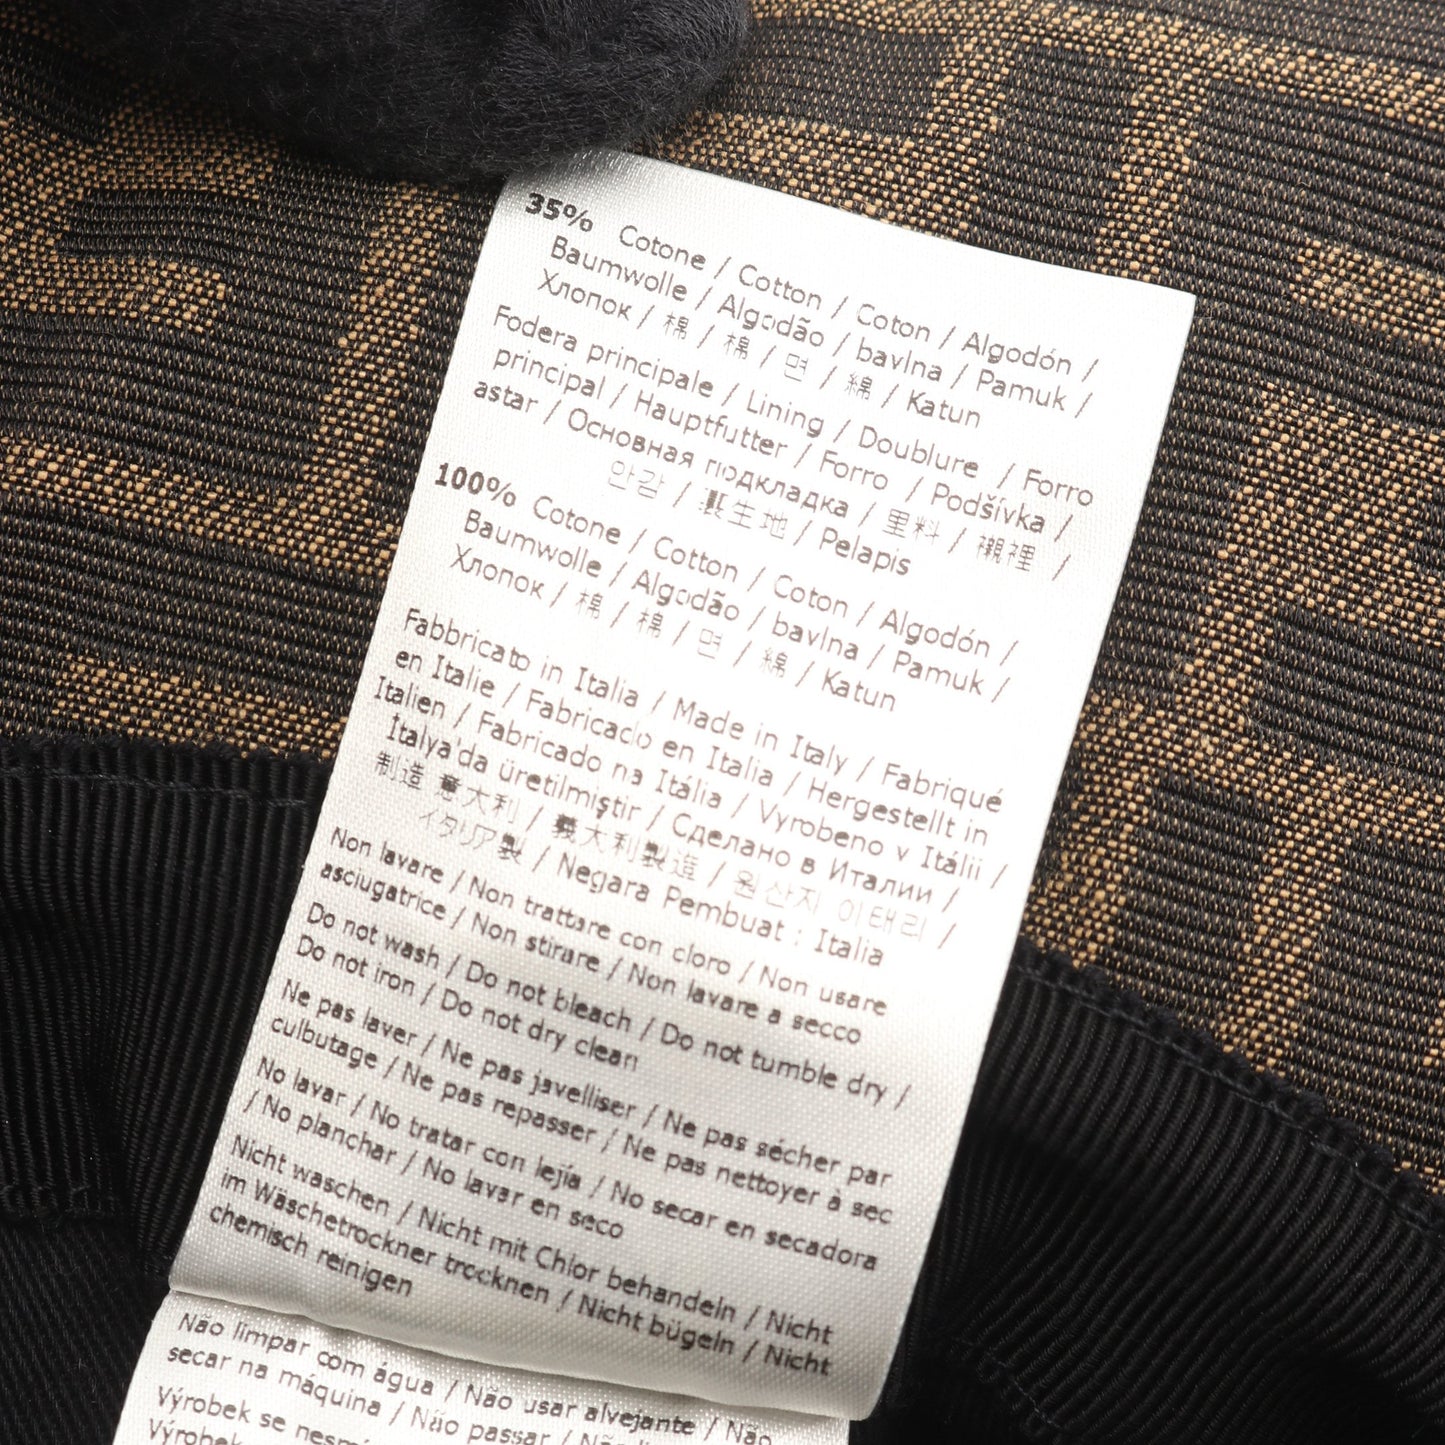 35% Cotone / Cotton / Coton / Algodón /
Baumwolle / Algodão / bavlna / Pamuk /
Хлопок / 棉 / 棉 / 면 / 綿 / Katun
Fodera principale / Lining / Doublure / Forro
principal / Hauptfutter / Forro / Podšívka /
astar / Основная подкладка / 里料 / 襯裡 /
안감 / 裏生地 / Pelapis
100% Cotone / Cotton / Coton / Algodón /
Baumwolle / Algodão / bavlna / Pamuk /
Хлопок / 棉 / 棉 / 면 / 綿 / Katun
Fabbricato in Italia / Made in Italy / Fabriqué
en Italie / Fabricado en Italia / Hergestellt in
Italien / Fabricado na Itália / Vyrobeno v Itálii /
İtalya'da üretilmiştir / Сделано в Италии /
制造 意大利 / 義大利製造 / 원산지 이태리 /
イタリア製 / Negara Pembuat : Italia
Non lavare / Non trattare con cloro / Non usare
asciugatrice / Non stirare / Non lavare a secco
Do not wash / Do not bleach / Do not tumble dry /
Do not iron / Do not dry clean
Ne pas laver / Ne pas javelliser / Ne pas sécher par
culbutage / Ne pas repasser / Ne pas nettoyer à sec
No lavar / No tratar con lejía / No secar en secadora
/ No planchar / No lavar en seco
Nicht waschen / Nicht mit Chlor behandeln / Nicht
im Wäschetrockner trocknen / Nicht bügeln / Nicht
chemisch reinigen
Não limpar com água / Não usar alvejante / Não
secar na máquina / Não passar / Não
Výrobek se
Výrobek